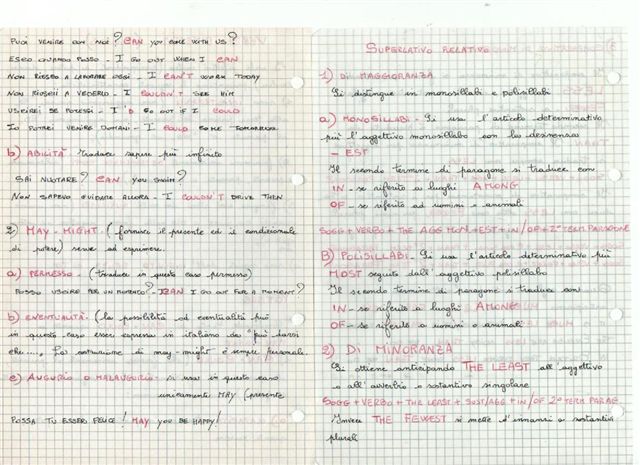 PUOI VENIRE CON NOI? CAN YOU COME WITH US?
ESCO QUANDO POSSO - I GO OUT WHEN I CAN
NON RIESCO A LAVORARE OGGI - I CAN'T WORK TODAY
NON RIUSCII A VEDERLO - I COULDN'T SEE HIM
USCIREI SE POTESSI - I'D GO OUT IF I COULD
IO POTREI VENIRE DOMANI - I COULD COME TOMORROW
b) ABILITÀ traduce sapere più infinito
SAI NUOTARE? CAN YOU SWIM?
NON SAPEVO GUIDARE ALLORA - I COULDN'T DRIVE THEN
2) MAY - MIGHT - (fornisce il presente ed il condizionale
di potere) serve ad esprimere.
a) PERMESSO - (traduce in questo caso permesso)
POSSO USCIRE PER UN MOMENTO? - CAN I GO OUT FOR A MOMENT?
b) EVENTUALITÀ: (la possibilità ed eventualità può
in questo caso essere espressa in italiano da "può darsi
che...., La costruzione di may-might è sempre personale.
c) AUGURIO O MALAUGURIO - si usa in questo caso
unicamente MAY (presente
POSSA TU ESSERE FELICE! MAY YOU BE HAPPY!
SUPERLATIVO RELATIVO
1) DI MAGGIORANZA
Si distingue in monosillabi e polisillabi
a) MONOSILLABI - Si usa l'articolo determinativo
più l'aggettivo monosillabo con la desinenza
- EST
Il secondo termine di paragone si traduce con
IN - se riferito a luoghi AMONG
OF - se riferito ad uomini o animali
SOGG + VERBO + THE AGG MON. + EST + IN / OF + 2° TERM PARAGONE
B) POLISILLABI - Si usa l'articolo determinativo più
MOST seguito dall'aggettivo polisillabo
Il secondo termine di paragone si traduce con
IN - se riferito a luoghi AMONG
OF - se riferito a uomini o animali
2) DI MINORANZA
Si ottiene anticipando THE LEAST all'aggettivo
o all'avverbio o sostantivo singolare
SOGG + VERBO + THE LEAST + SOST/AGG + IN / OF 2° TERM PARAG.
Invece THE FEWEST si mette d'innanzi a sostantivi
plurali